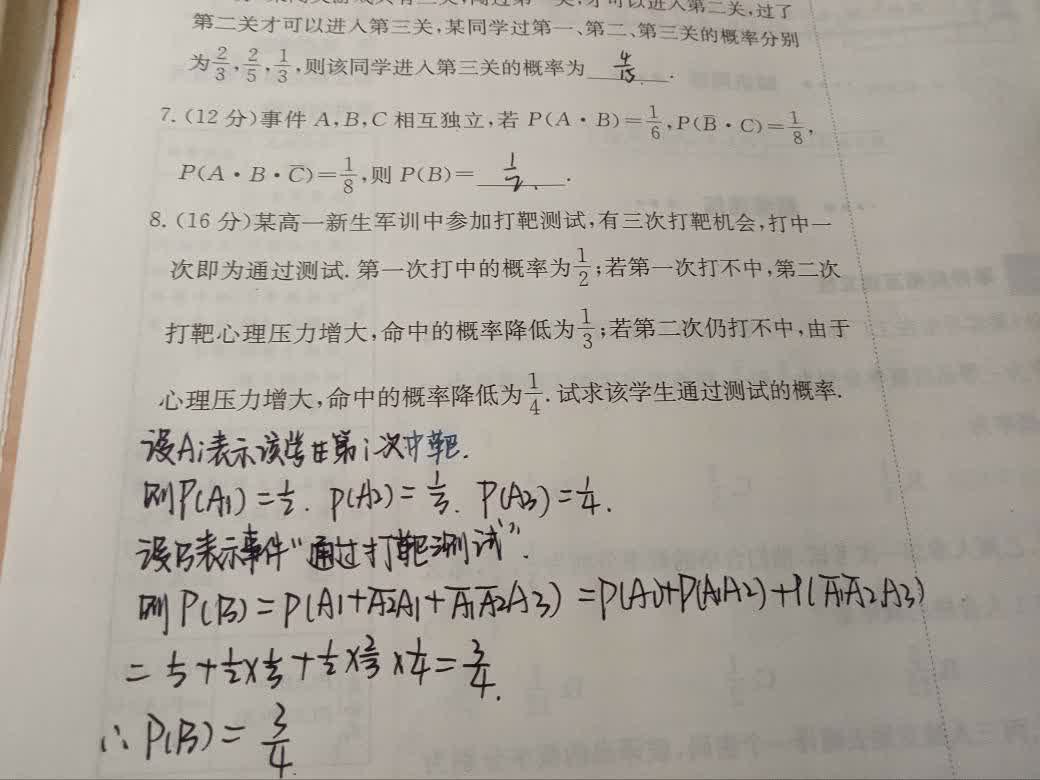 才可以进入第二关,过了
第二关才可以进入第三关,某同学过第一、第二、第三关的概率分别
为2/3,2/5,1/3,则该同学进入第三关的概率为 4/15 .
7. (12分)事件 A,B,C 相互独立,若 P(A·B)=1/6,P(B̄·C)=1/8,
P(A·B·C̄)=1/8,则 P(B)= 1/2 .
8. (16分)某高一新生军训中参加打靶测试,有三次打靶机会,打中一
次即为通过测试. 第一次打中的概率为1/2;若第一次打不中,第二次
打靶心理压力增大,命中的概率降低为1/3;若第二次仍打不中,由于
心理压力增大,命中的概率降低为1/4. 试求该学生通过测试的概率.
设Ai表示该学生在第i次中靶.
则P(A1)=1/2. P(A2)=1/3. P(A3)=1/4.
设B表示事件“通过打靶测试”.
则P(B)=P(A1+A̅2A1+A̅1A̅2A3)=P(A1)+P(A1A2)+P(A̅1A̅2A3)
=1/2+1/2×1/3+1/2×2/3×1/4=3/4.
∴P(B)=3/4